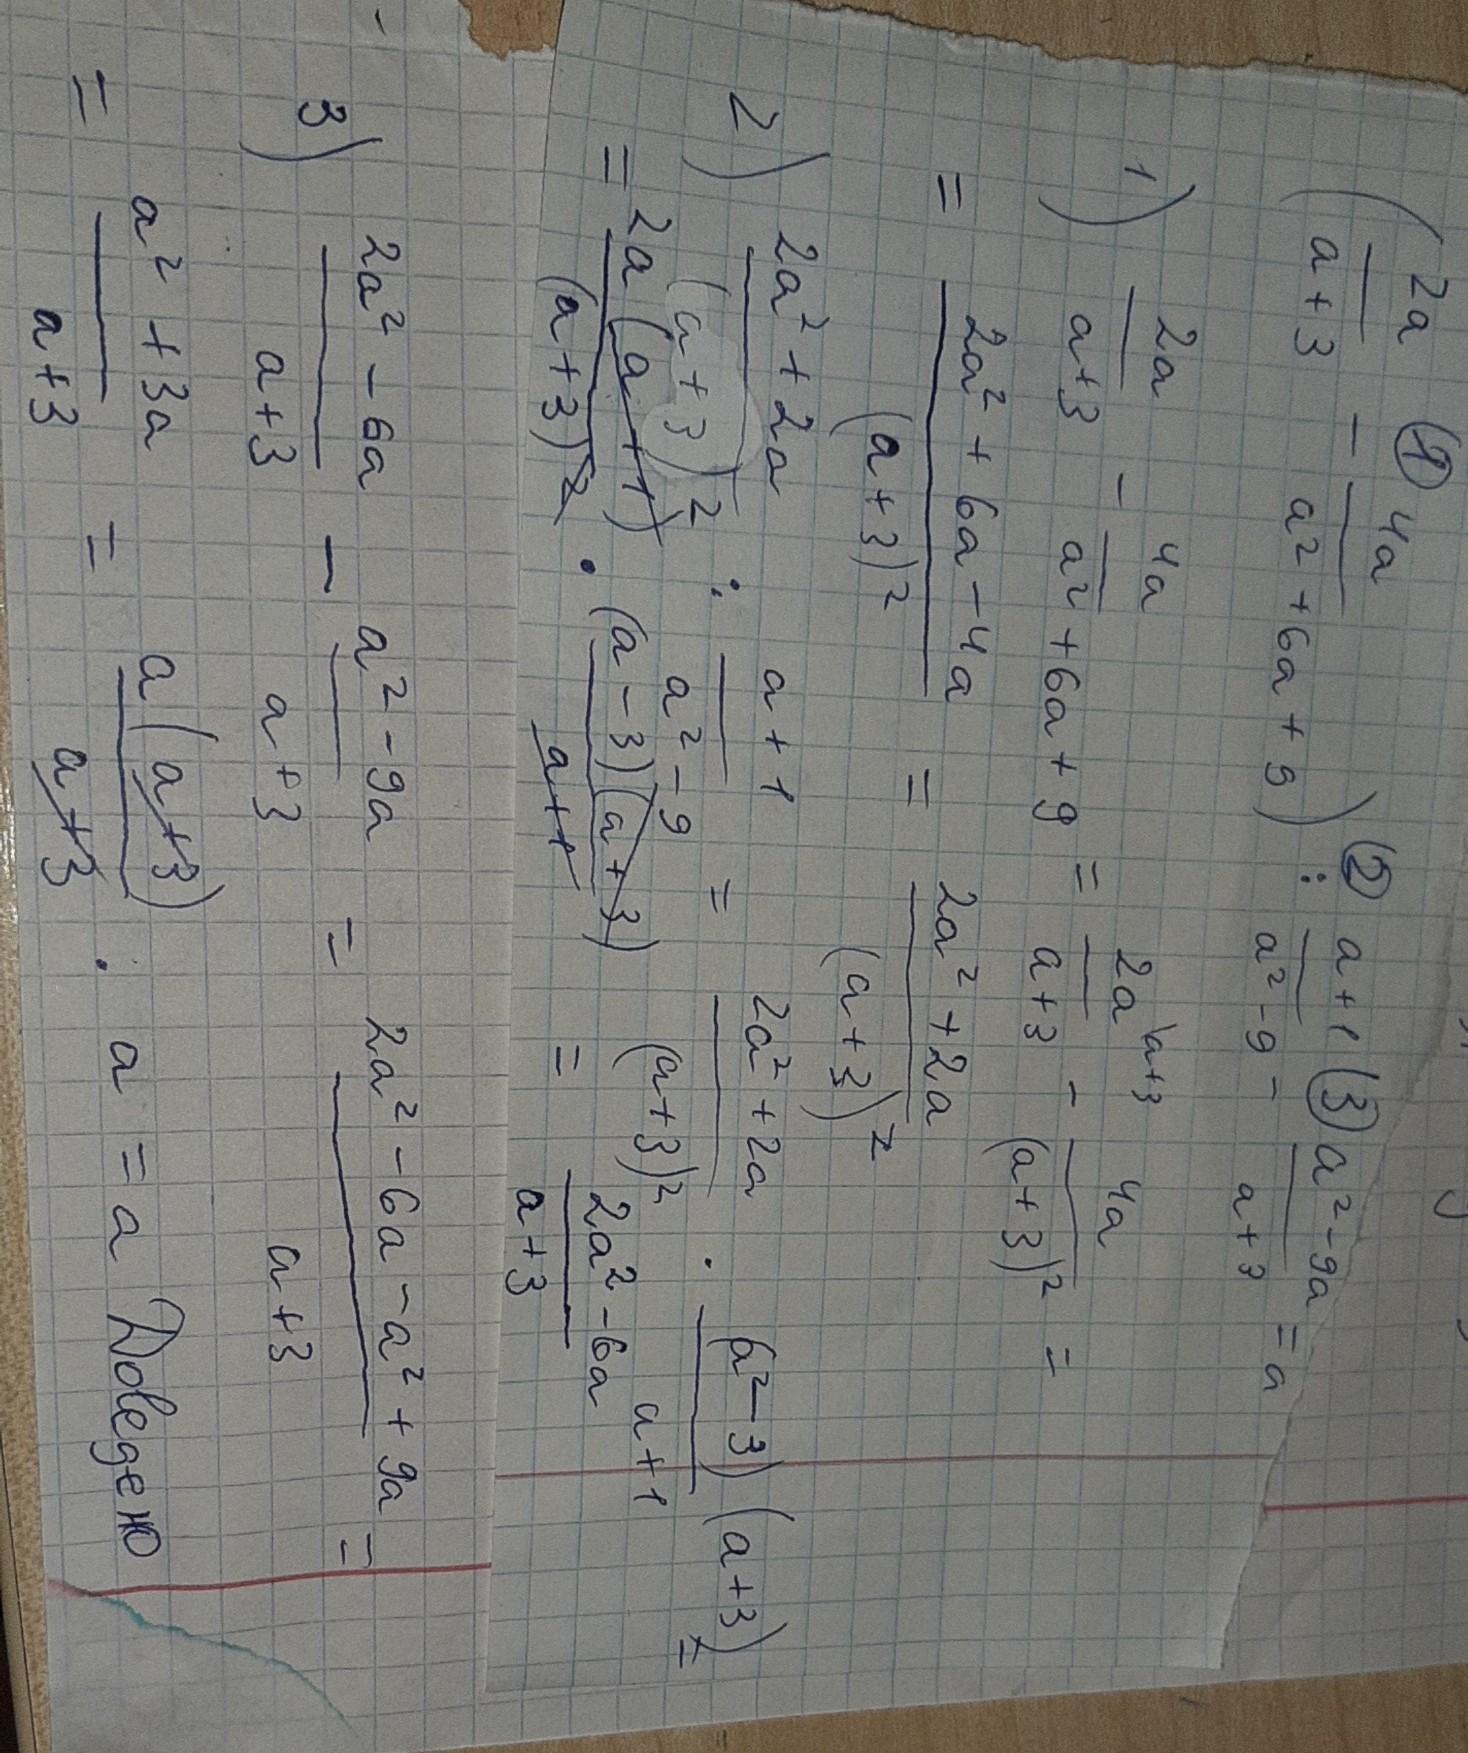 (2a/(a+3) - 4a/(a²+6a+9)) : (a+1)/(a²-9) - (a²-9a)/(a+3) = a
① ② ③
1) 2a/(a+3) - 4a/(a²+6a+9) = 2a\a+3/(a+3) - 4a/(a+3)² =
= (2a²+6a-4a)/(a+3)² = (2a²+2a)/(a+3)²
2) (2a²+2a)/(a+3)² : (a+1)/(a²-9) = (2a²+2a)/(a+3)² · (a²-3)(a+3)/(a+1) =
= 2a(a+1)/(a+3)² · (a-3)(a+3)/(a+1) = (2a²-6a)/(a+3)
3) (2a²-6a)/(a+3) - (a²-9a)/(a+3) = (2a²-6a-a²+9a)/(a+3) =
= (a²+3a)/(a+3) = a(a+3)/(a+3) . a = a Доведено